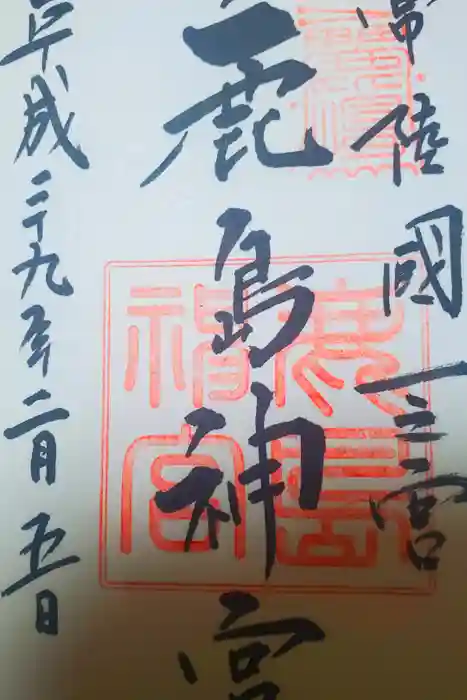 常陸國一之宮
鹿島神宮
平成二十九年二月五日
鹿島
神宮